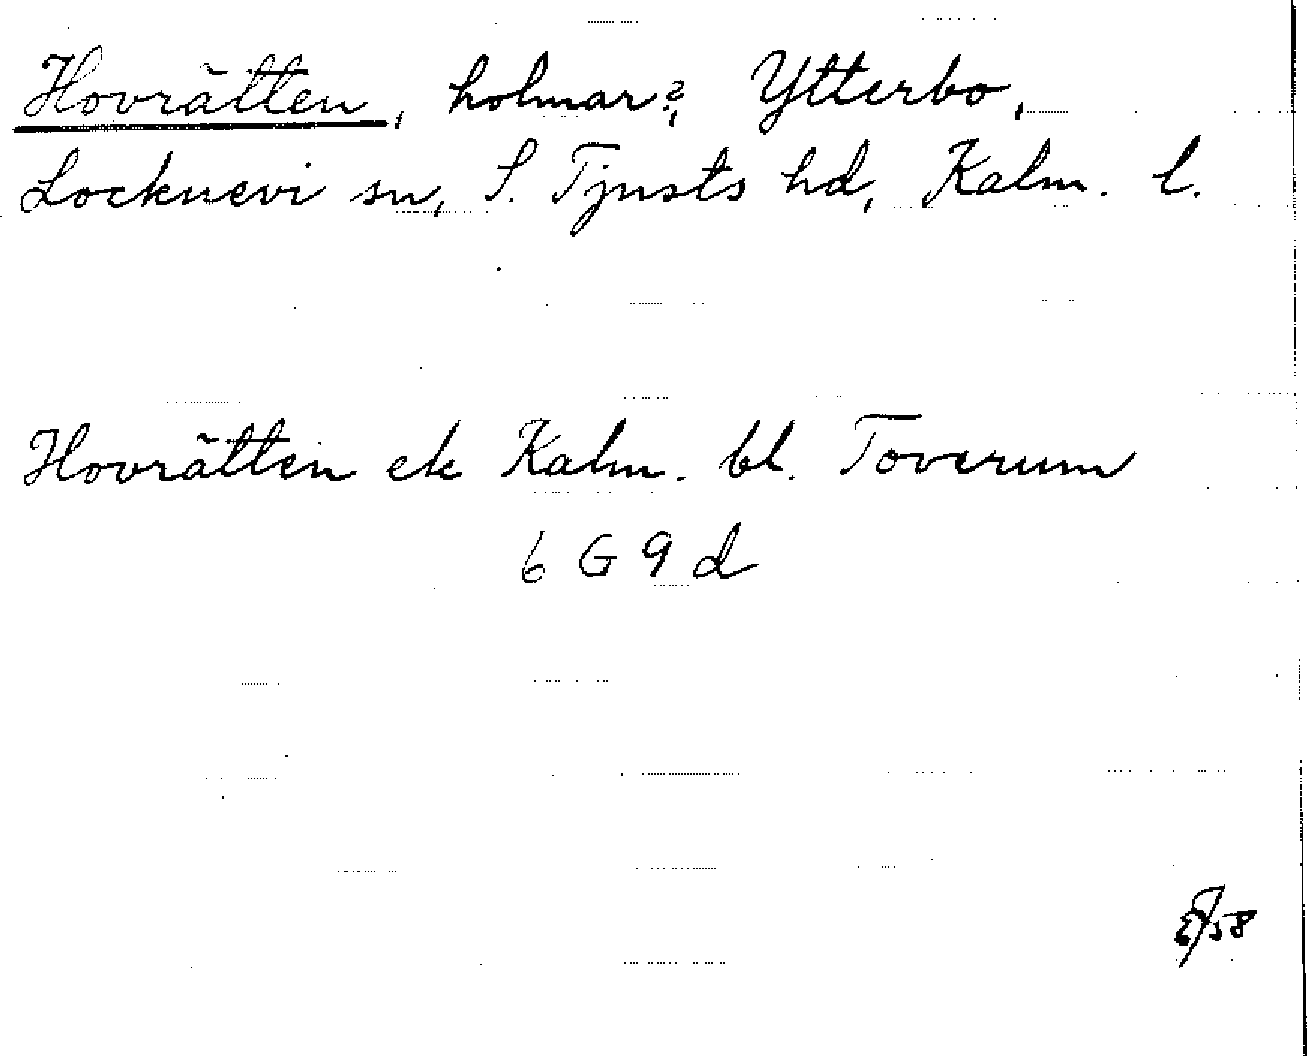 Hovrätten, holmar?, Ytterbo,
Locknevi sn, S. Tjusts hd, Kalm. l.
Hovrätten ek Kalm. bl. Toverum
6 G 9 d